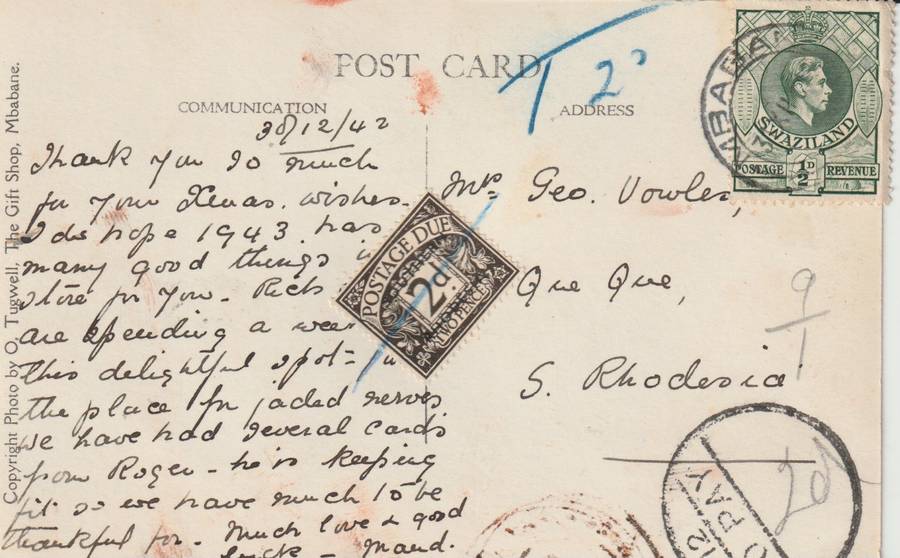 POST CARD
T 2D
COMMUNICATION
ADDRESS
30/12/42
Thank you so much
for your Xmas. wishes.
I do hope 1943. has
many good things
store for you - Rich
are spending a wee
this delightful spot -
the place for jaded nerves
we have had several cards
from Roger - he is keeping
fit so we have much to be
thankful for - Much love & good
luck - Maud.
Mrs Geo. Vowles,
Que Que,
S. Rhodesia
SWAZILAND
POSTAGE ½D REVENUE
MBABAN
POSTAGE DUE
2d.
TWO PENCE
SOUTHERN
RHODESIA
9/1
2d
PAY
2
Copyright Photo by O. Tugwell, The Gift Shop, Mbabane.